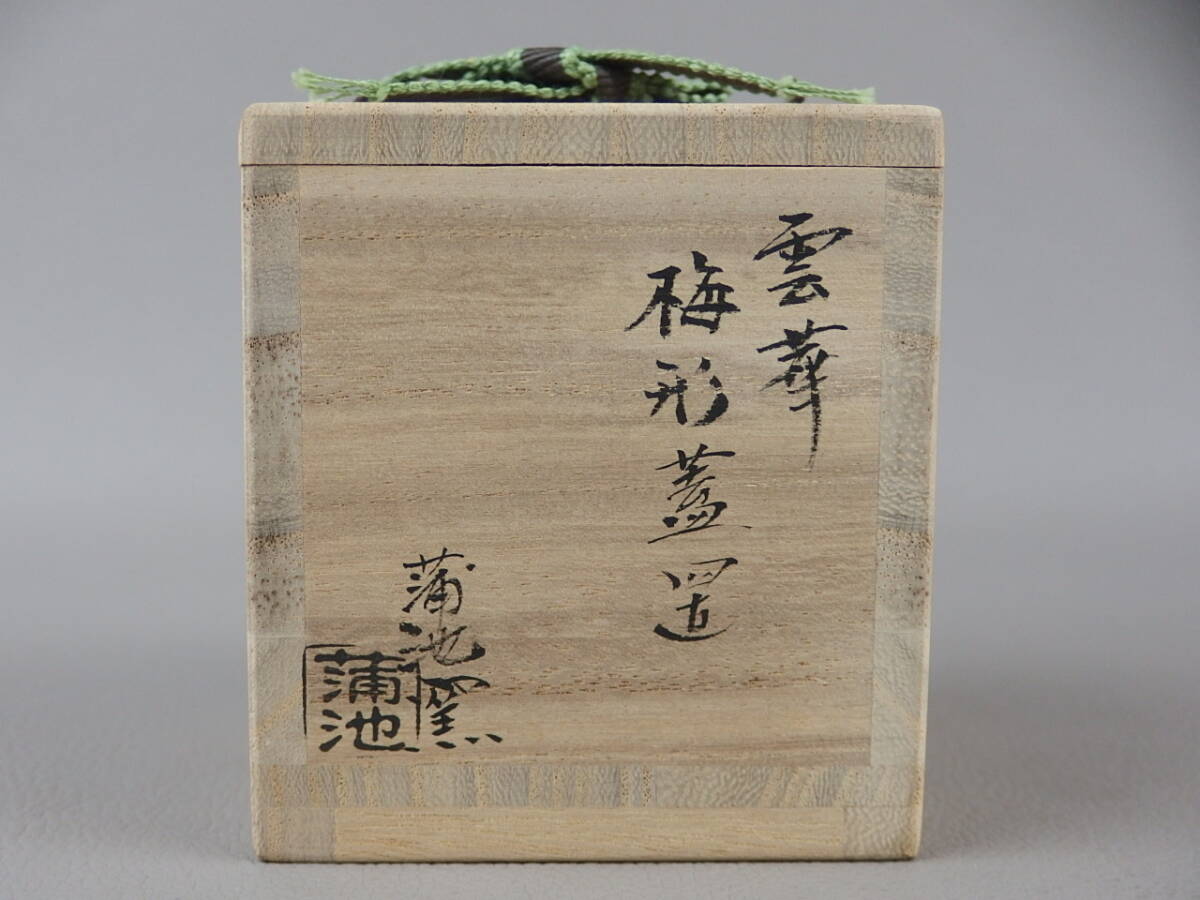 雲華
梅形蓋置
蒲池窯
蒲池